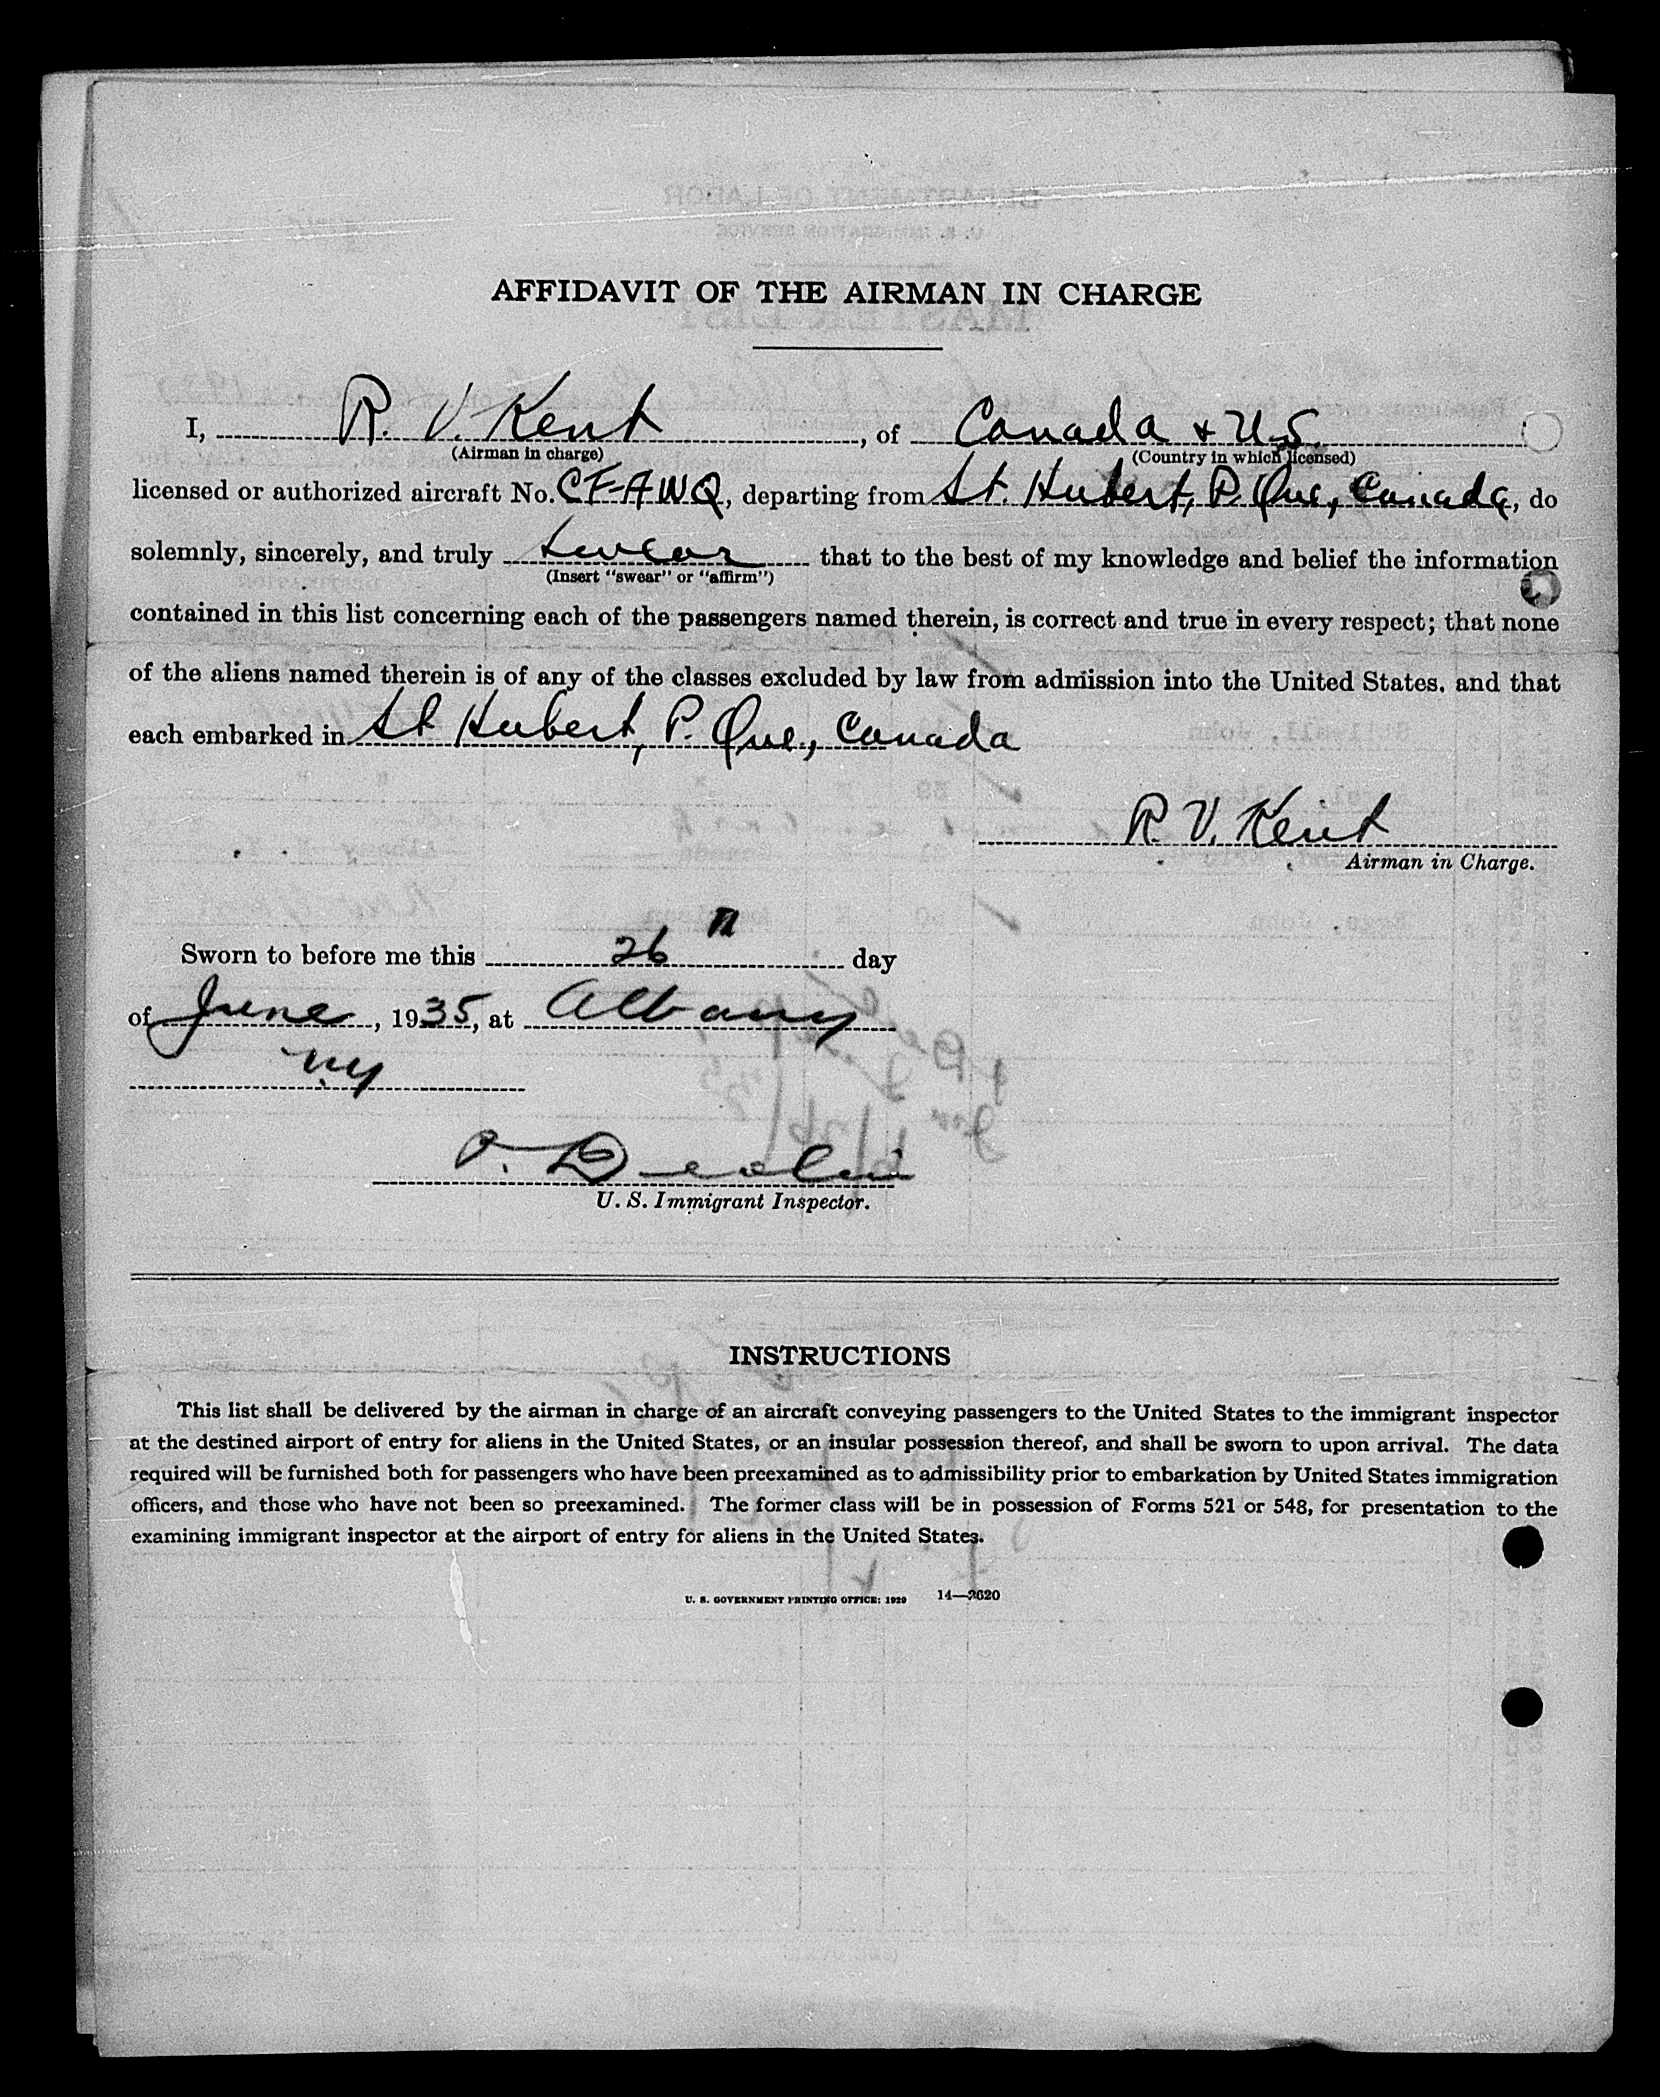 AFFIDAVIT OF THE AIRMAN IN CHARGE
I, R. V. Kent, of Canada + U.S.
(Airman in charge) (Country in which licensed)
licensed or authorized aircraft No. CF-AWQ, departing from St. Hubert, P. Que., Canada, do
solemnly, sincerely, and truly swear that to the best of my knowledge and belief the information
(Insert "swear" or "affirm")
contained in this list concerning each of the passengers named therein, is correct and true in every respect; that none
of the aliens named therein is of any of the classes excluded by law from admission into the United States, and that
each embarked in St Hubert, P. Que., Canada
R. V. Kent
Airman in Charge.
Sworn to before me this 26 day
of June, 1935, at Albany
NY
U. S. Immigrant Inspector.
INSTRUCTIONS
This list shall be delivered by the airman in charge of an aircraft conveying passengers to the United States to the immigrant inspector
at the destined airport of entry for aliens in the United States, or an insular possession thereof, and shall be sworn to upon arrival. The data
required will be furnished both for passengers who have been preexamined as to admissibility prior to embarkation by United States immigration
officers, and those who have not been so preexamined. The former class will be in possession of Forms 521 or 548, for presentation to the
examining immigrant inspector at the airport of entry for aliens in the United States.
U. S. GOVERNMENT PRINTING OFFICE: 1929 14—2620